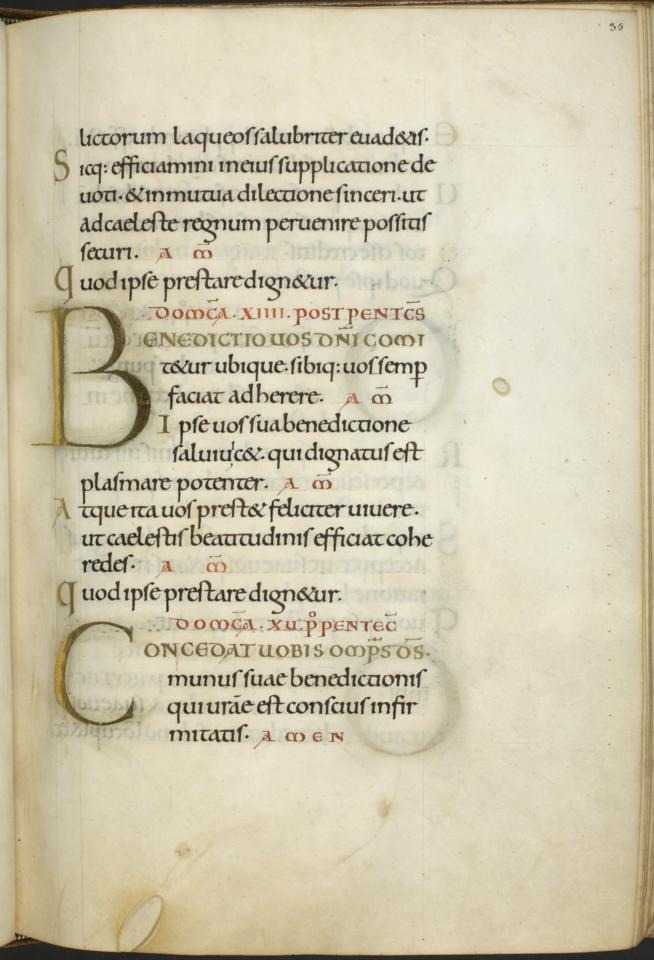 36
lictorum laqueos salubriter euad&is.
Sicq: efficiamini ineius supplicatione de
uoti. & inmutua dilectione sinceri. ut
adcaeleste regnum peruenire possitis
securi. A m̅
Quod ipse prestare dign&ur.
DOMC̅A. XIIII. POST PENTC̅S
BENEDICTIO UOS DN̅I COMI
t&ur ubique. sibiq: uos semp̲
faciat adherere. A m̅
Ipse uos sua benedictione
saluiuic&. qui dignatus est
plasmare potenter. A m̅
Atque ita uos prest& feliciter uiuere.
ut caelestis beatitudinis efficiat cohe
redes. A m̅
Quod ipse prestare dign&ur.
DOMC̅A. XU. PͦPENTEC̅
CONCEDAT UOBIS OMP̅S D̅S.
munus suae benedictionis
qui urāe est conscius infir
mitatis. AMEN